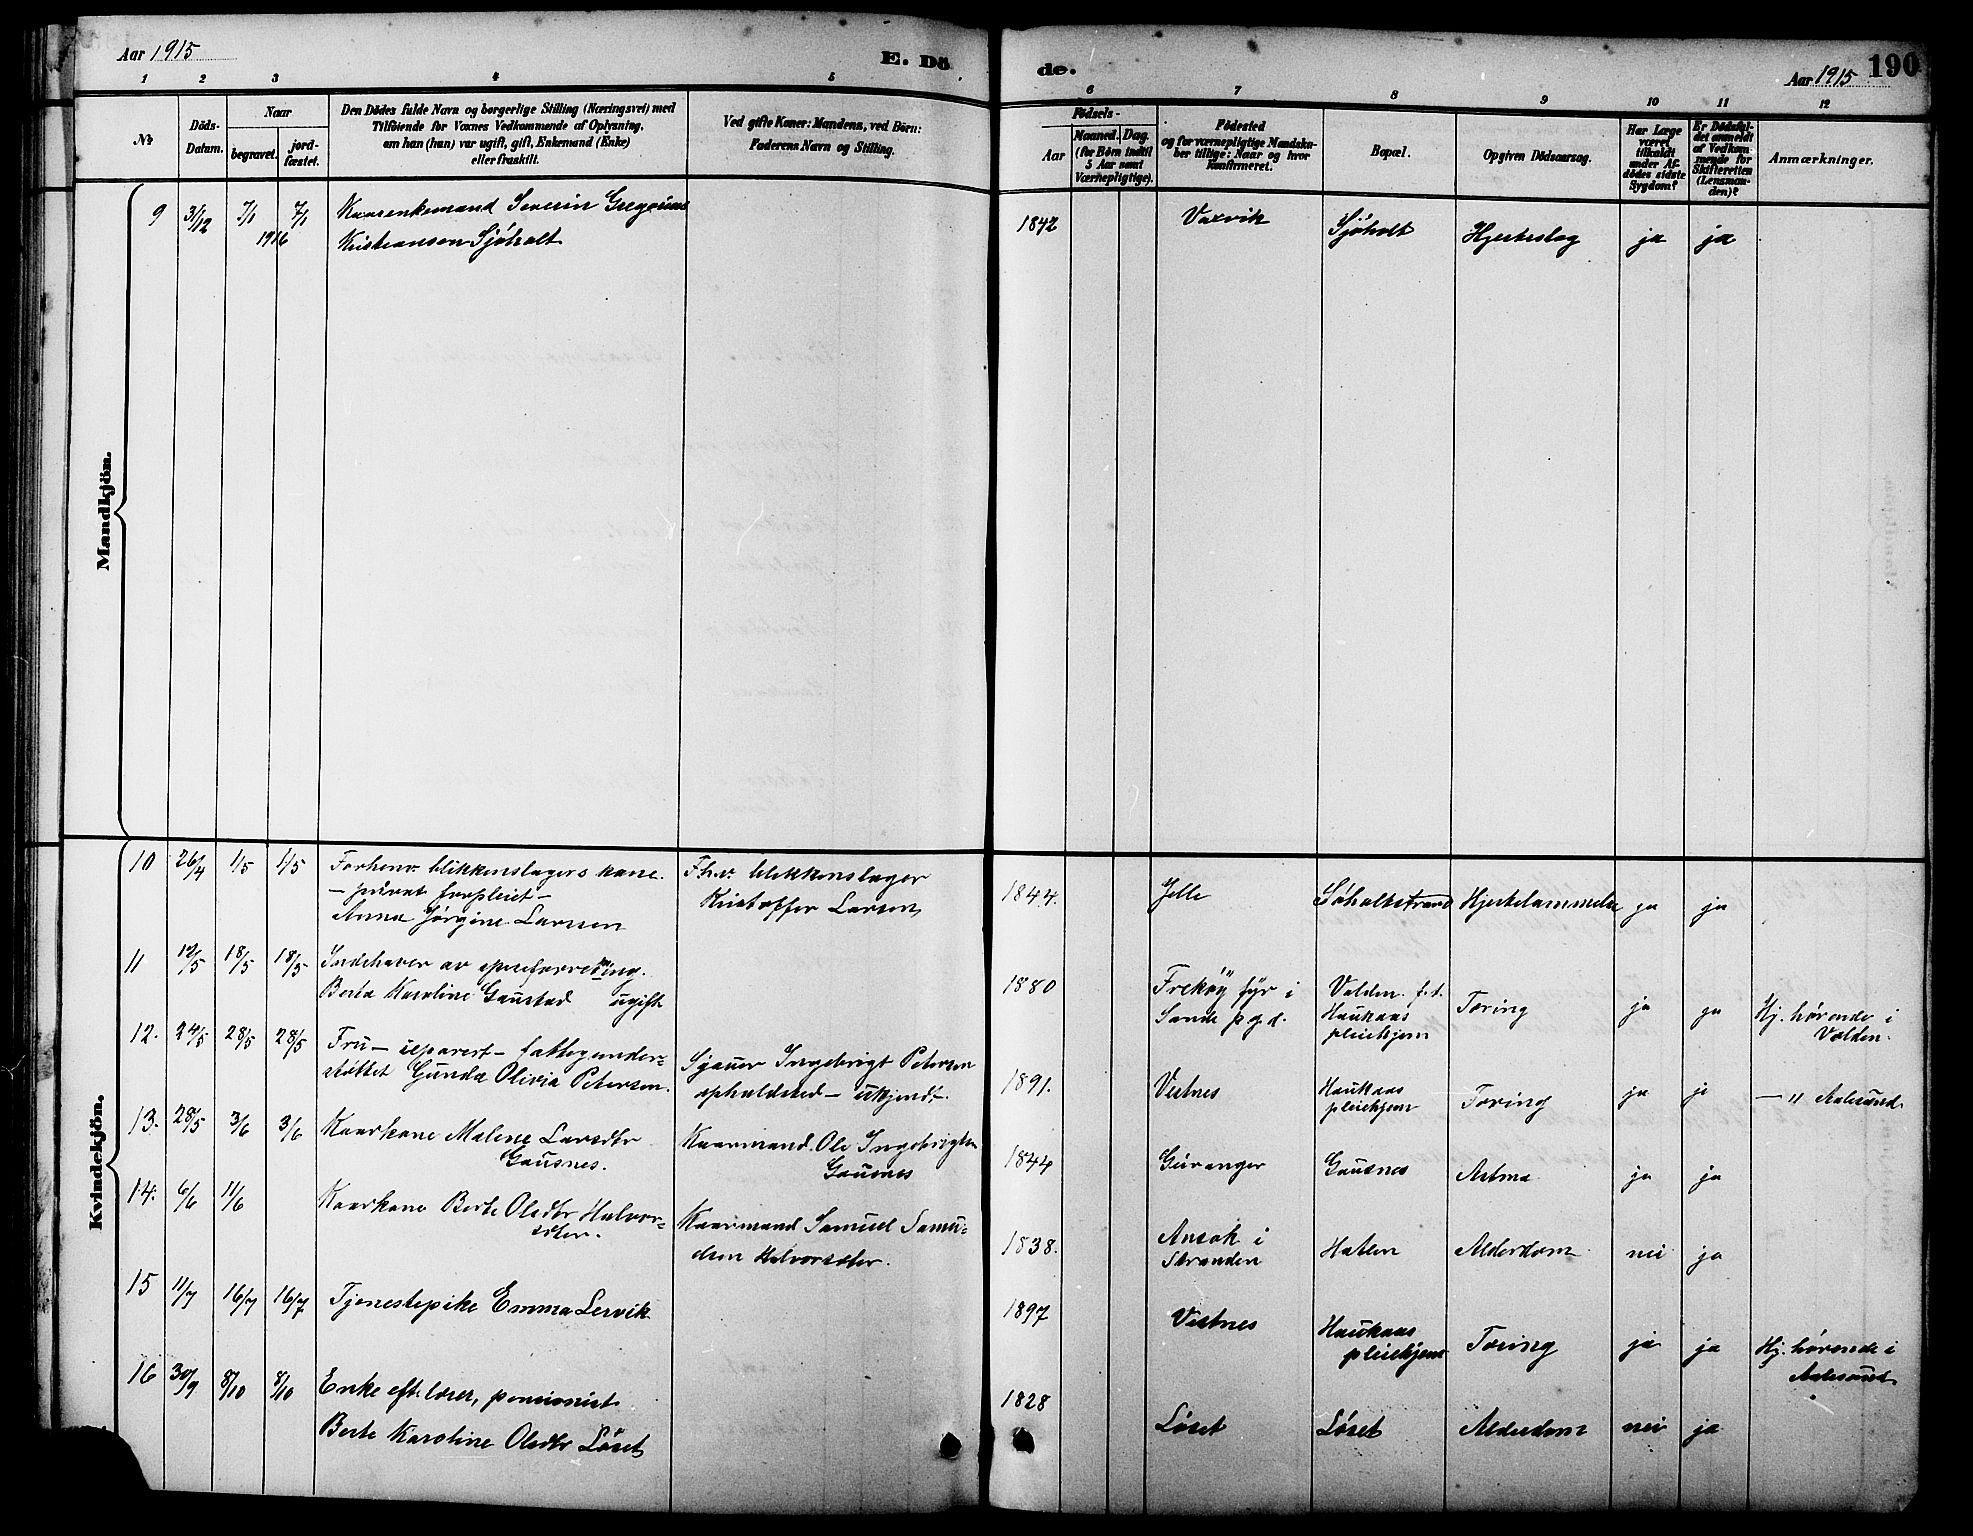 Aar 1915
E. Dö
de.
Aar 1915
190
1 2 3 4 5 6 7 8 9 10 11 12
No
Döds-
Datum.
Naar
begravet.
jord-
fæstet.
Den Dödes fulde Navn og borgerlige Stilling (Næringsvei) med
Tilföiende for Voxnes Vedkommende af Oplysning,
om han (hun) var ugift, gift, Enkemand (Enke)
eller fraskilt.
Ved gifte Koner: Mandens, ved Börn:
Faderens Navn og Stilling.
Födsels-
Aar
Maaned. Dag.
(for Börn indtil
5 Aar samt
Værnepligtige).
Födested
og for værnepligtige Mandska-
ber tillige: Naar og hvor
konfirmeret.
Bopæl.
Opgiven Dödsaarsag.
Har Læge
været
tilkaldt
under Af-
dödes sidste
Sygdom?
Er Dödsfal-
det anmeldt
af Vedkom-
mende for
Skifteretten
(Lensman-
den)?
Anmærkninger.
Mandkjön.
9 31/12 7/1 7/1 Kaarenkemand Severin Gregorius
1916 Kristiansen Sjøholt
1842 Vaxvik Sjøholt Hjerteslag ja ja
Kvindekjön.
10 26/4 1/5 1/5 Forhenv. blikkenslagers kone.
— privat forpleiet —
Anna Jørgine Larsen
Fhv. blikkenslager
Kristoffer Larsen
1844. Jelle Søholtstrand Hjertelammelse ja ja
11 12/5 18/5 18/5 Indehaver av
Berta Karoline Gaustad ugift
1880 Frekøy fyr i
Sande pgd.
Volden. f.t.
Haukaas
pleiehjem
Tæring ja ja Hj. hørende i
Volden.
12. 24/5 28/5 28/5 Fru — separert — fattigunder-
støttet Gunda Olivia Petersen.
Sjauer Ingebrigt Petersen
opholdsted — ukjendt.
1891. Vestnes Haukaas
pleiehjem
Tæring ja ja — " Aalesund.
13. 28/5 3/6 3/6 Kaarkone Malene Larsdtr
Gausnes.
Kaarmand Ole Ingebrigtsen
Gausnes
1844 Geiranger Gausnes Astma ja ja
14. 6/6 11/6 Kaarkone Berte Olsdtr Halvor-
sæter.
Kaarmand Samuel Samu-
elsen Halvorsæter.
1838. Ansok i
Stranden
Hatlen Alderdom nei ja
15 11/7 16/7 16/7 Tjenestepike Emma Lervik
1897 Vestnes Haukaas
pleiehjem
Tæring ja ja Hj. hørende i
Aalesund
16 30/9 8/10 8/10 Enke eft. lærer, pensionist
Berte Karoline Olsdtr Løset
1828 Løset Løset Alderdom nei ja